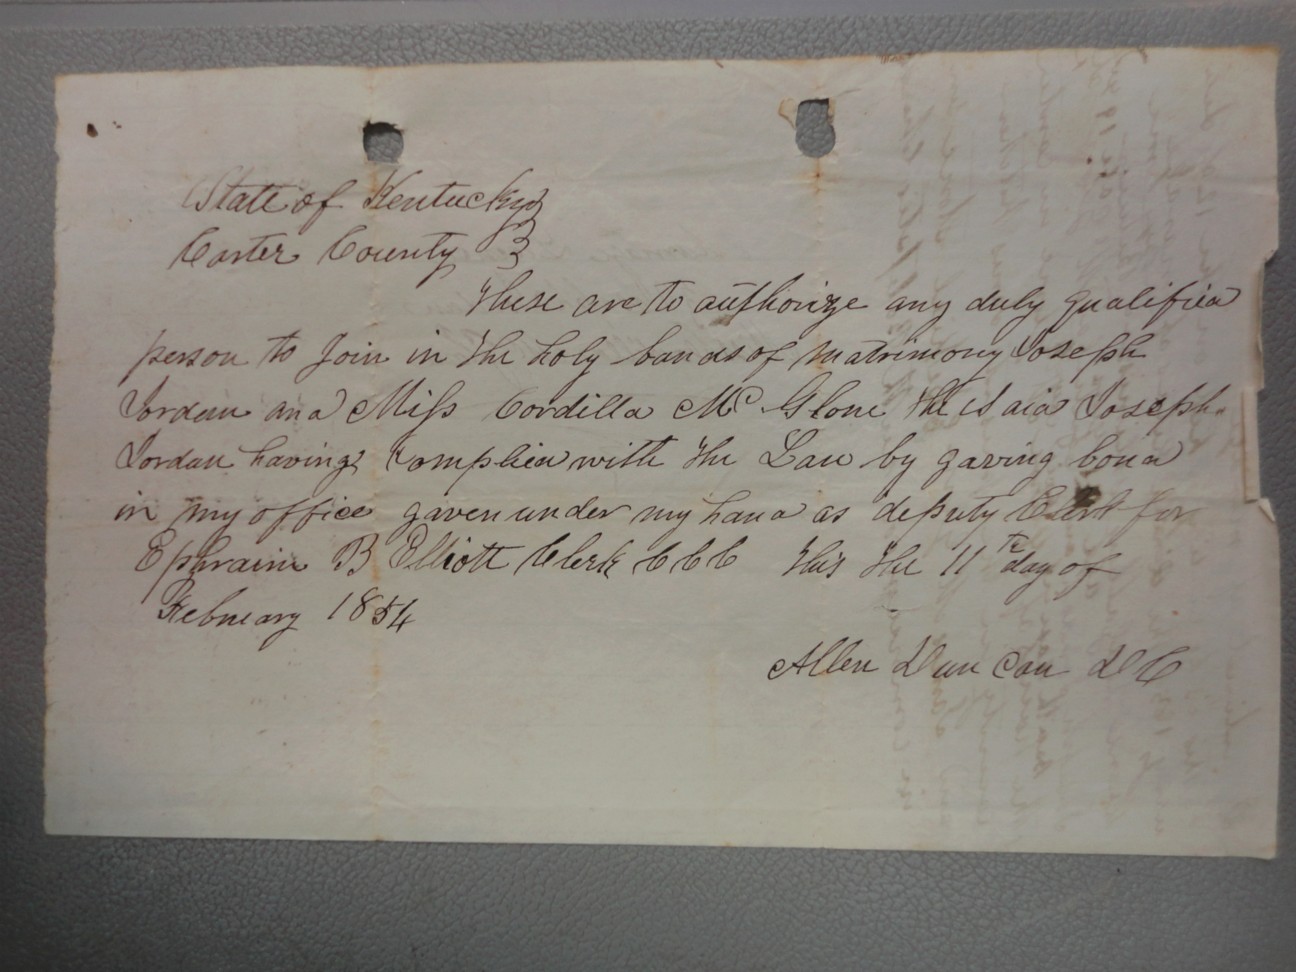 State of Kentucky }
Carter County }
These are to authorize any duly qualified
person to Join in the holy bands of matrimony Joseph
Jordan and Miss Cordilla Mc Glone the said Joseph
Jordan having complied with the Law by gaving bond
in my office gaven under my hand as deputy Clerk for
Ephraim B Elliott Clerk C C C this the 11th day of
February 1854
Allen Duncan D C